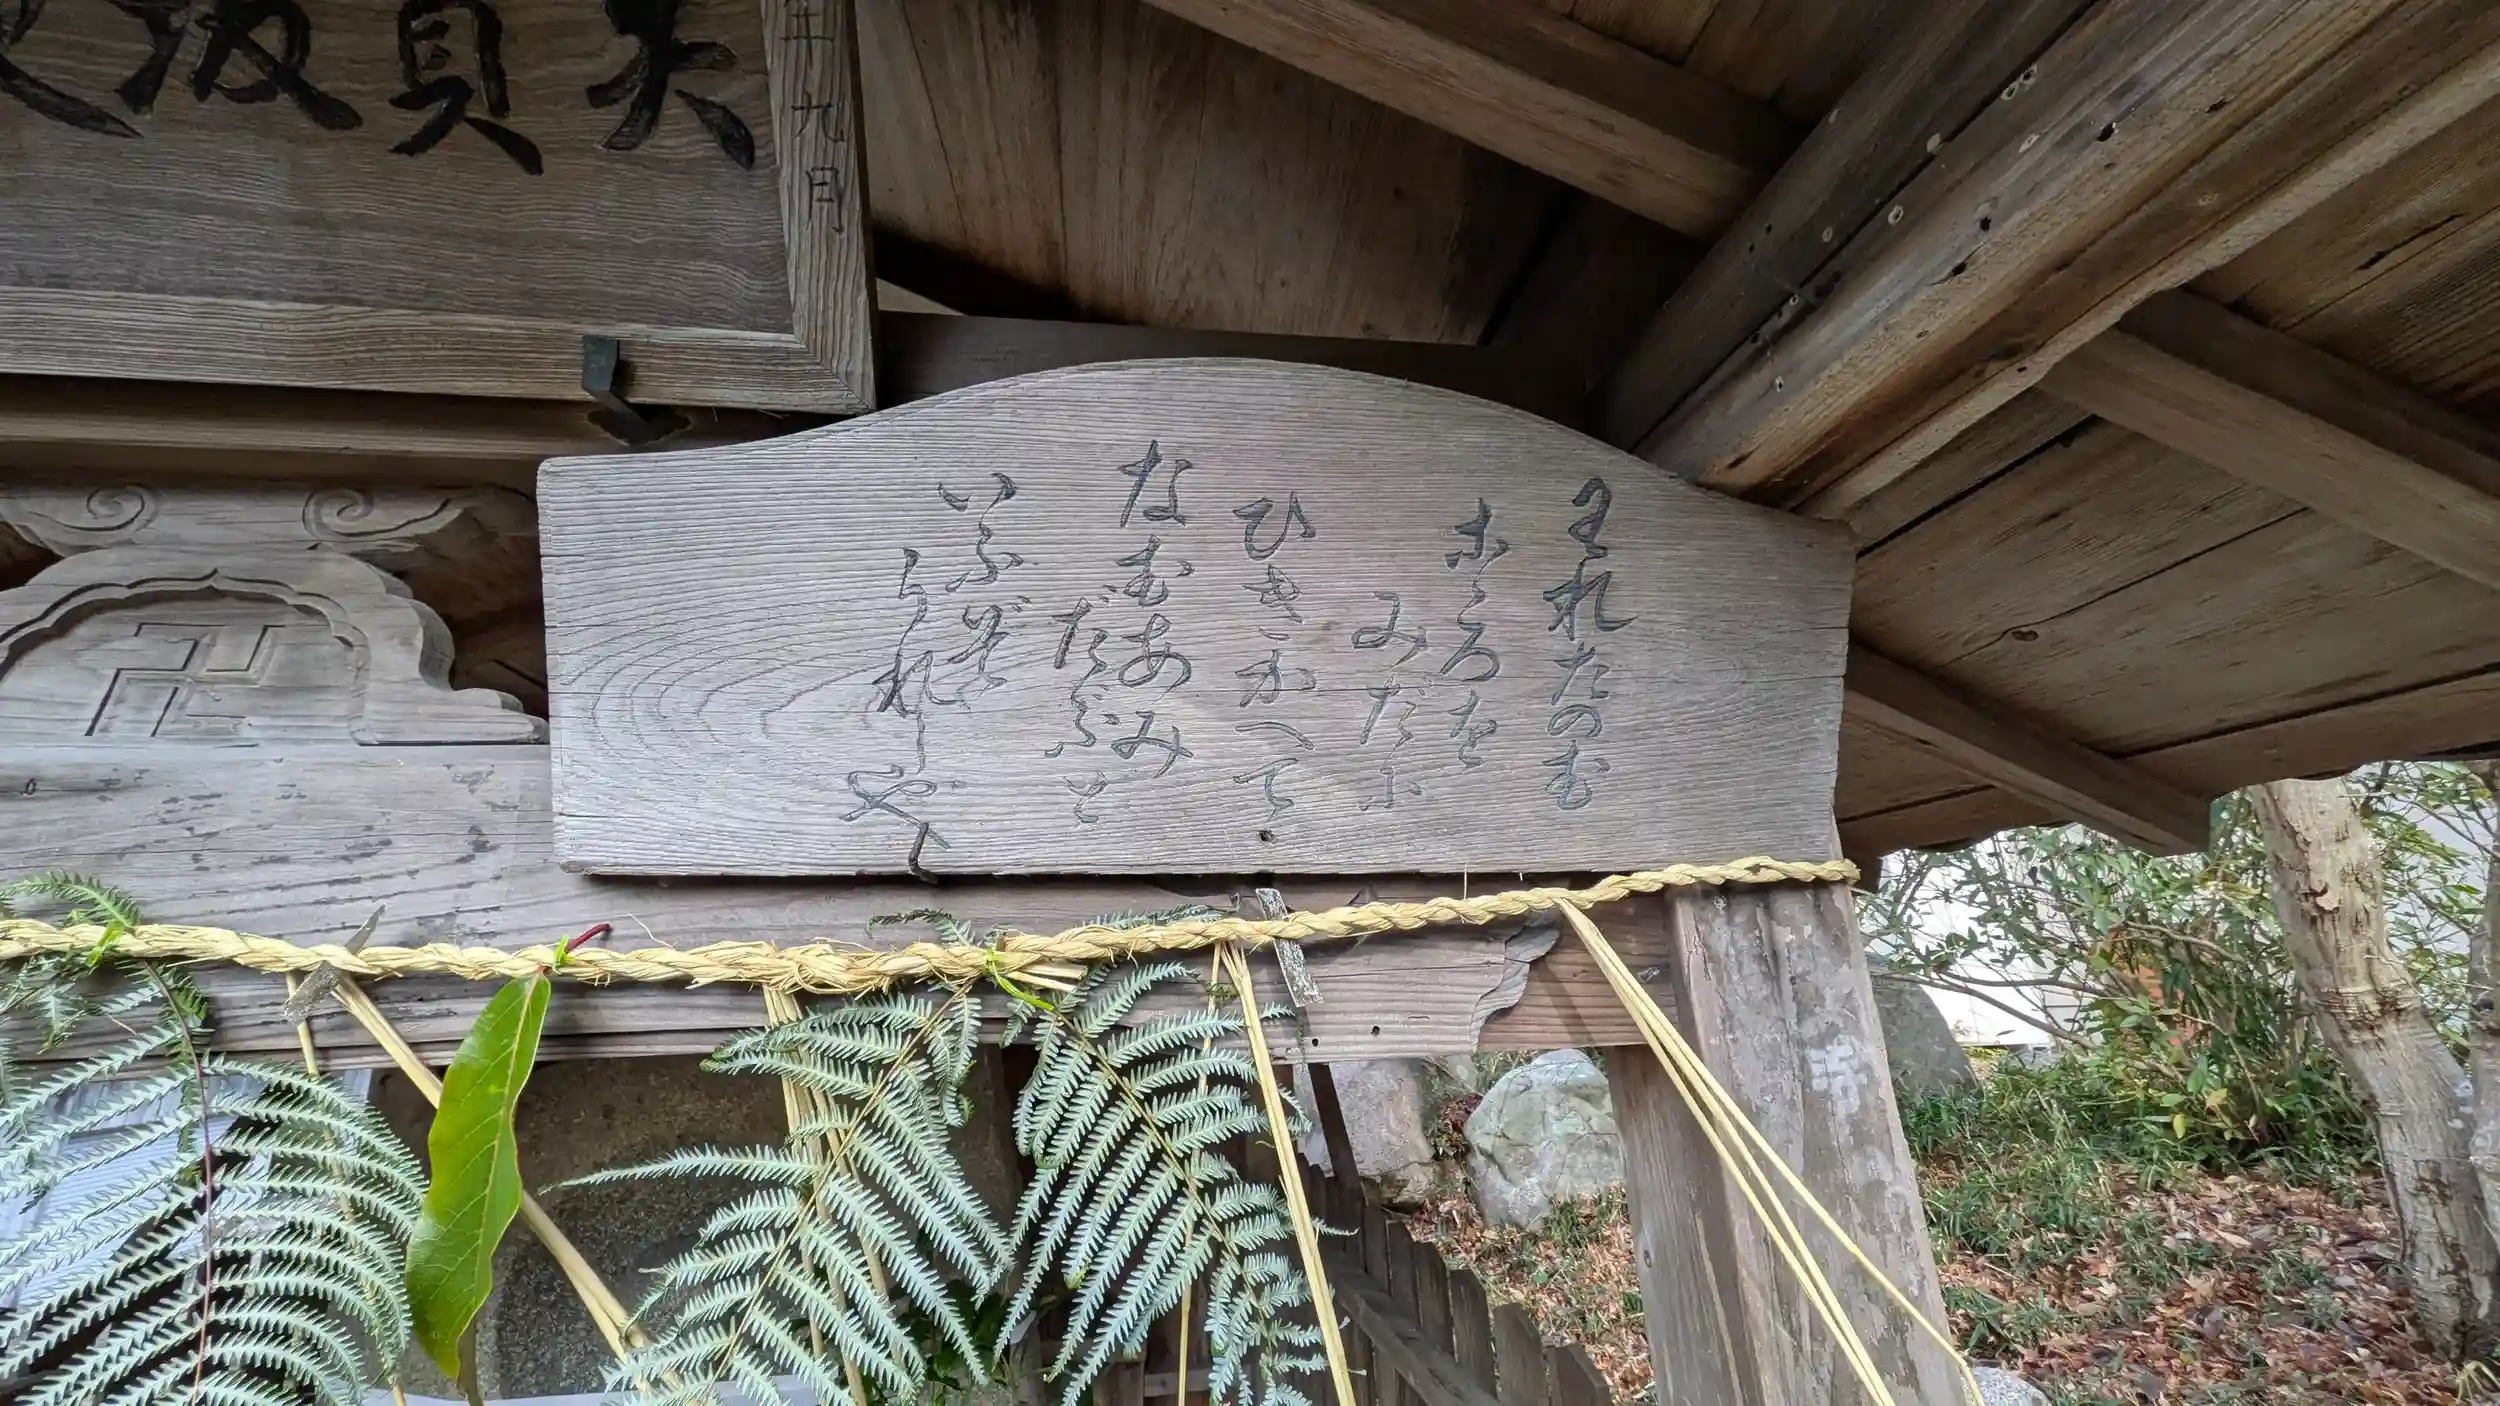 大貝
九日
われたのむ
こゝろを
みだに
ひきかへて
なむあみ
だぶと
いふぞ
うれしや